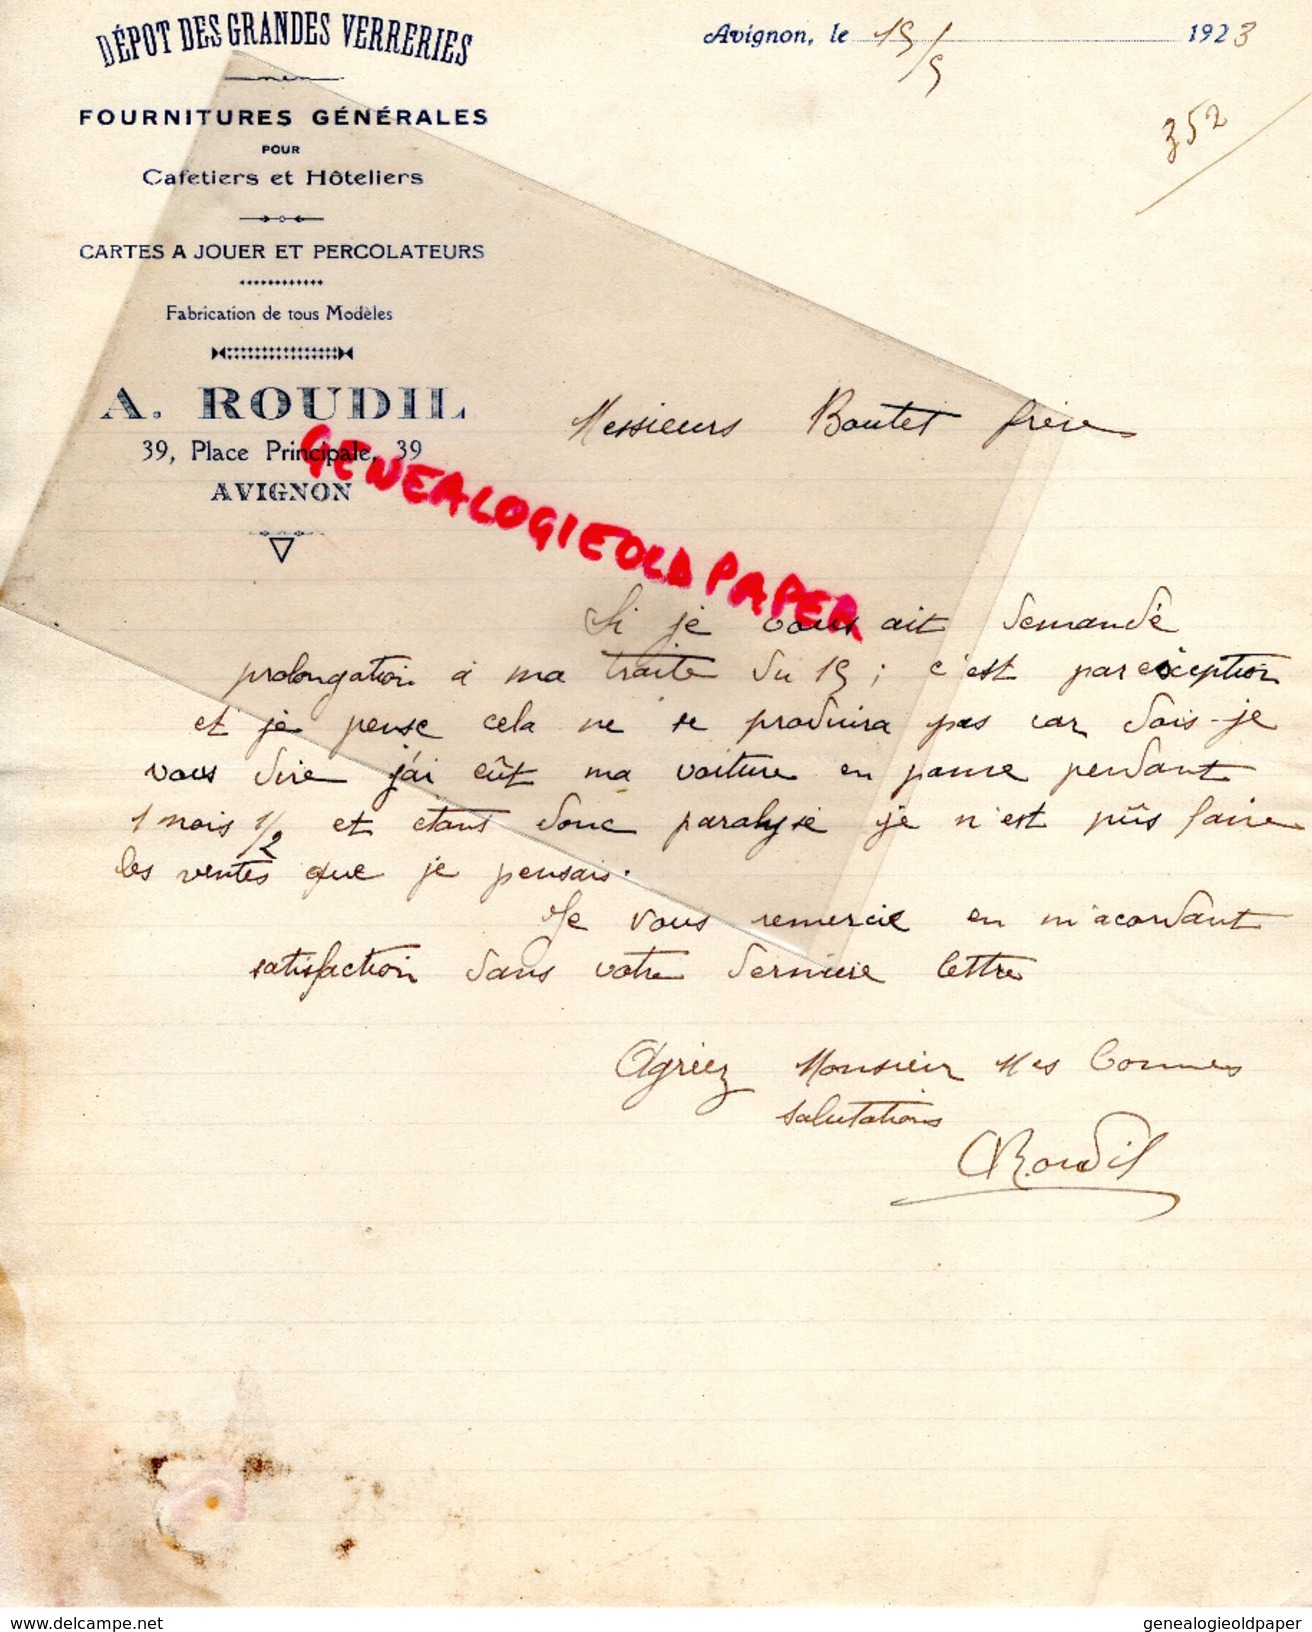 DÉPOT DES GRANDES VERRERIES
FOURNITURES GÉNÉRALES
POUR
Cafetiers et Hôteliers
CARTES A JOUER ET PERCOLATEURS
Fabrication de tous Modèles
A. ROUDIL
39, Place Principale, 39
AVIGNON
Avignon, le 15/5 1923
352
Messieurs Boutet frère
GENEALOGIEOLDPAPER
Si je vous ait demandé
prolongation à ma traite du 15 ; c'est par exception
et je pense cela ne se produira pas car dois-je
vous dire j'ai eût ma voiture en panne pendant
1 mois 1/2 et étant donc paralysé je n'est pûs faire
les ventes que je pensais.
Je vous remercie en m'acordant
satisfaction dans votre derniere lettre
Agréez Monsieur Mes bonnes
salutations
ARoudil
www.delcampe.net
genealogieoldpaper